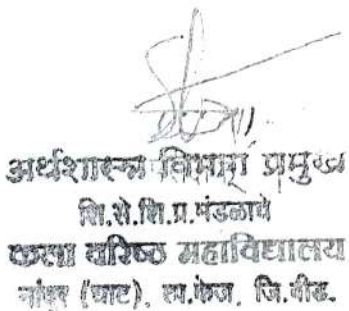 अर्थशास्त्र विभाग प्रमुख
शि.से.शि.प्र.मंडळाचे
कला वरिष्ठ महाविद्यालय
नांदूर (घाट), ता.केज, जि.बीड.